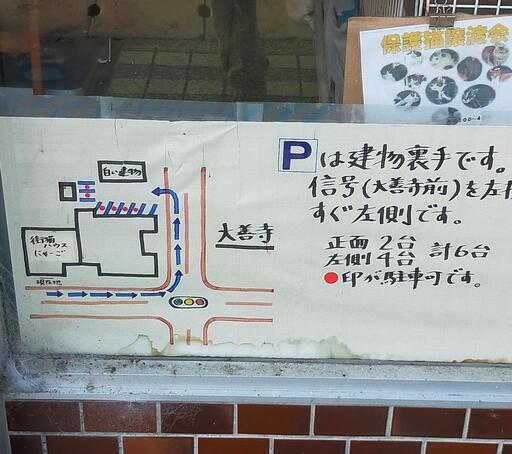 保護猫譲渡会
Pは建物裏手です。
信号(大善寺前)を左
すぐ左側です。
正面 2台
左側 4台 計6台
●印が駐車可です。
白い建物
大善寺
街猫
ハウス
にゃーご
現在地